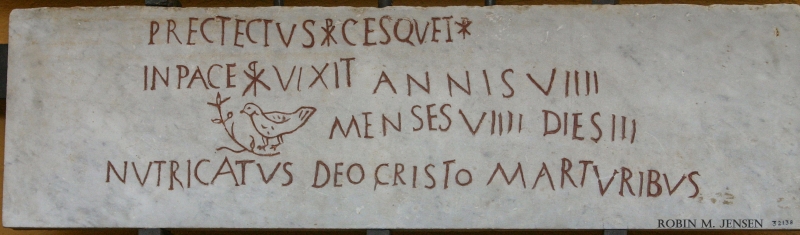 PRECTECTVS ☧ CESQVET ☧
IN PACE ☧ VIXIT ANNIS VIIII
MENSES VIIII DIES III
NVTRICATVS DEO CRISTO MARTVRIBVS
ROBIN M. JENSEN